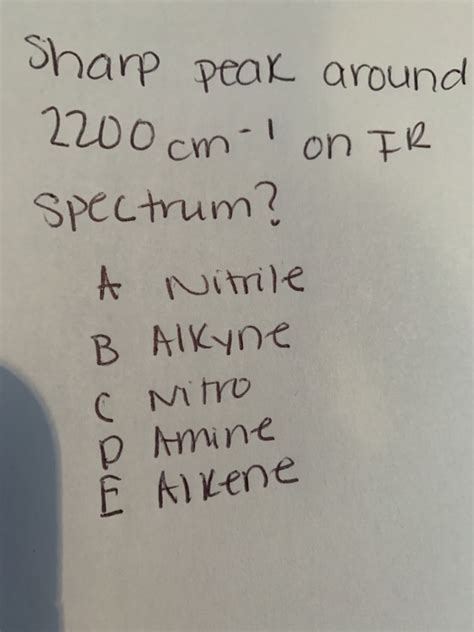 Sharp peak around
2200 cm-1 on IR
spectrum?
A Nitrile
B Alkyne
C Nitro
D Amine
E Alkene